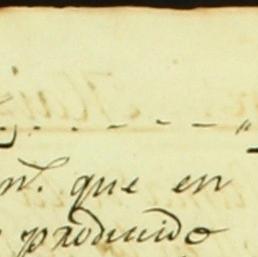 n. que en
producido